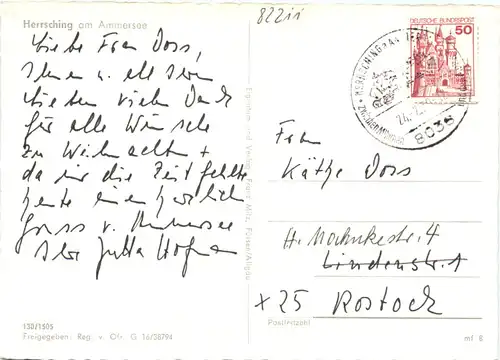 Herrsching am Ammersee
82211
Liebe Frau Doss,
Ihnen u. all Ihren
Lieben vielen Dank
für alle Wünsche
zu Weihnachten +
da mir die Zeit fehlte
heute einen herzlichen
Gruss v. Ammersee
Ihre Jutta
138/1505
Freigegeben: Reg. v. Obb. G 16/38794
Eigentum und Verlag Franz Milz, Füssen/Allgäu
DEUTSCHE BUNDESPOST
50
HERRSCHING a.
8036
Frau
Käthe Doss
H. Mahnkestr. 4
Lindenstr. 1
x 25 Rostock
Postleitzahl
mf 8